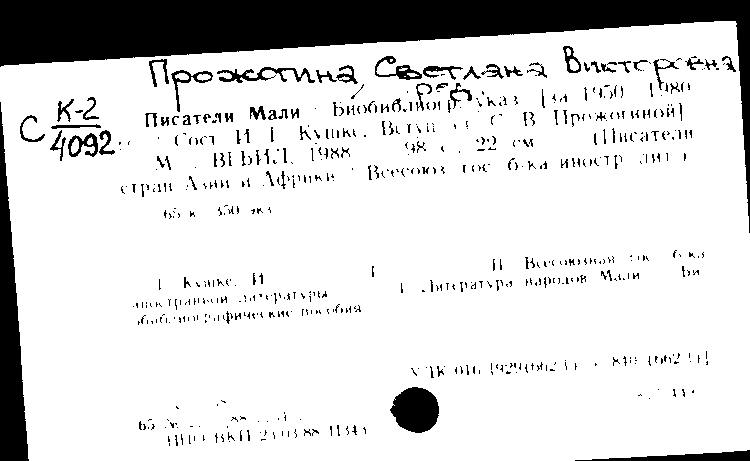 Прожогина Светлана Викторовна
ред.
С К-2
4092
Писатели Мали : Библиогр. указ. [за 1950 1980
Сост. И. Г. Кушке, Вступ. ст. С. В. Прожогиной]
М. ВГБИЛ, 1988 98 с., 22 см (Писатели
стран Азии и Африки / Всесоюз. гос. б-ка иностр. лит.)
65 к. 350 экз.
I. Кушке, И. Г. II. Всесоюзная гос. б-ка
иностранной литературы 1. Литература народов Мали Би
обиблиографические пособия
УДК 016
65 № 88
НПО ВКП 23.03.88